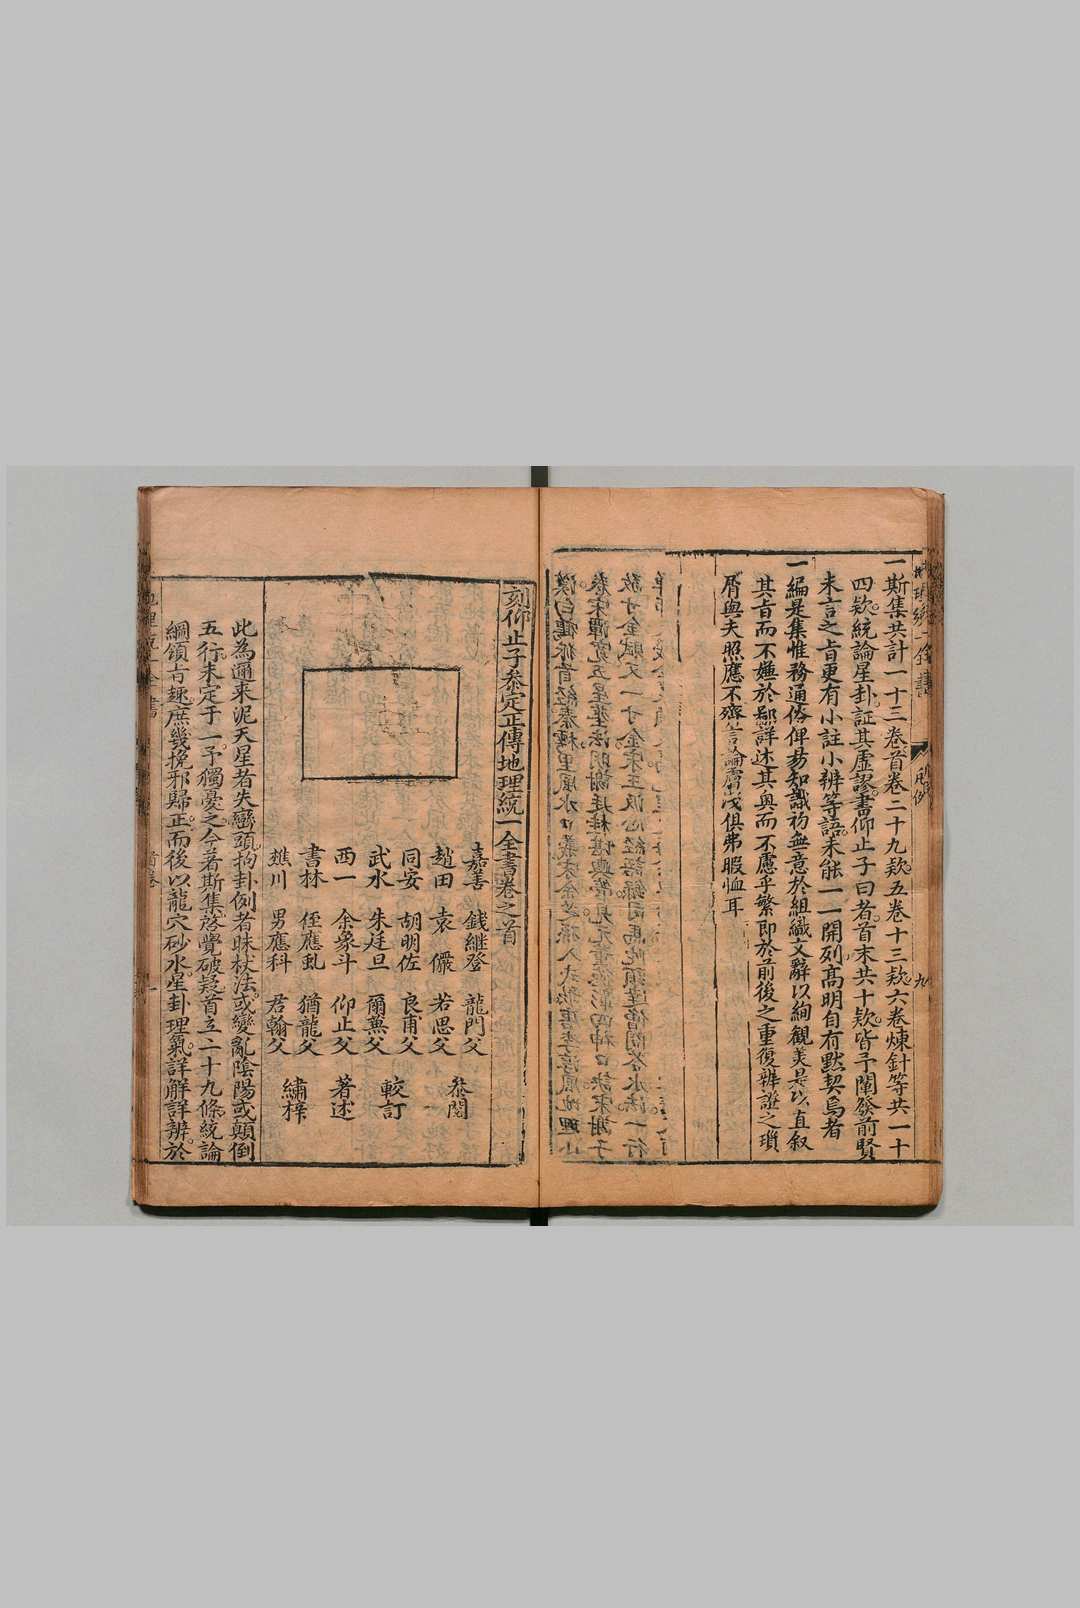 一斯集共計一十三卷首卷二十九欵五卷十三欵六卷煉針等共一十
四欵統論星卦証其虛謬書仰止子曰者首末共十欵皆予闡發前賢
未言之旨更有小註小辨等語未能一一開列高明自有默契焉者
一編是集惟務通俗俾易知識初無意於組織文辭以絢觀美是以直叙
其旨而不嫌於鄙詳述其奧而不慮乎繁即於前後之重復辨證之瑣
屑與夫照應不齊言論膚淺俱弗暇恤耳
刻仰止子參定正傳地理統一全書卷之首
嘉善 錢繼登 龍門父
趙田 袁儼 若思父 叅閱
同安 胡明佐 良甫父
武水 朱廷旦 爾兼父 較訂
西一 余象斗 仰止父 著述
書林 侄應虬 猶龍父
樵川 男應科 君翰父 繡梓
此為邇來泥天星者失巒頭拘卦例者昧杖法或變亂陰陽或顛倒
五行未定于一予獨憂之今著斯集啓覺破疑首立二十九條統論
綱領旨趣庶幾挽邪歸正而後以龍穴砂水星卦理氣詳解詳辨於